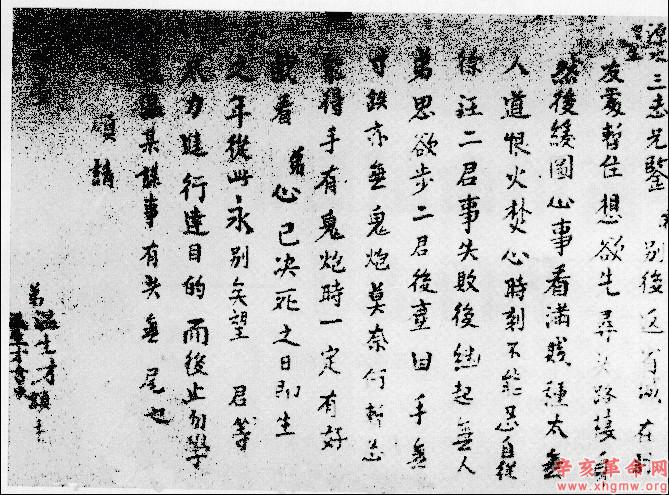 源水三志兄鑒 別後返 在
友處暫住想欲先尋头路棲身
然後緩圖心事看滿賤種太無
人道恨火焚心時刻不能忍自從
徐汪二君事失敗後繼起無人
弟思欲步二君後塵因手無
寸鉄亦無鬼炮莫奈何暫忍
能得手有鬼炮時一定有好
戲看弟心已决死之日即生
之年從此永別矣望 君等
力進行達目的而後止勿學
温某謀事有头無尾也
順請
弟温生才頓
辛亥革命网
www.xhgmw.org